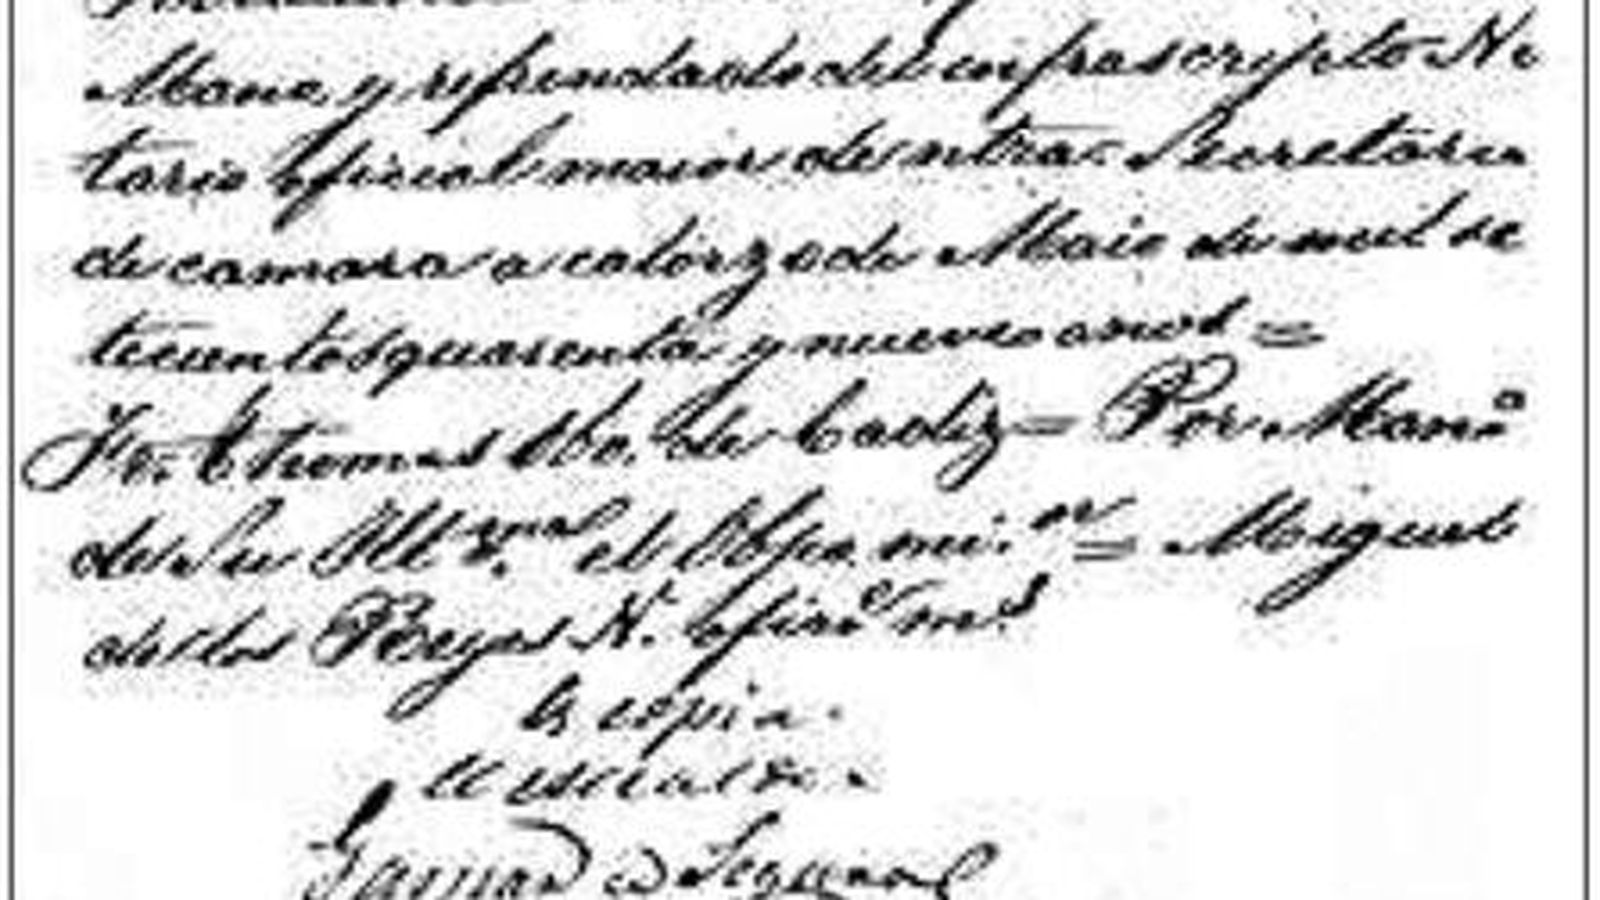 Mano, y refrendado del infrascripto No
tario oficial maior de ntra. Secretaria
de camara a catorze de Maio de mil se
tecientos quarenta y nueve anos =
Fr. Thomas Obo. de Cadiz = Por Man.o
de Su Illma. el Obpo. mi s.or = Miguel
de los Reyes N. Ofic.l m.r
Es copia.